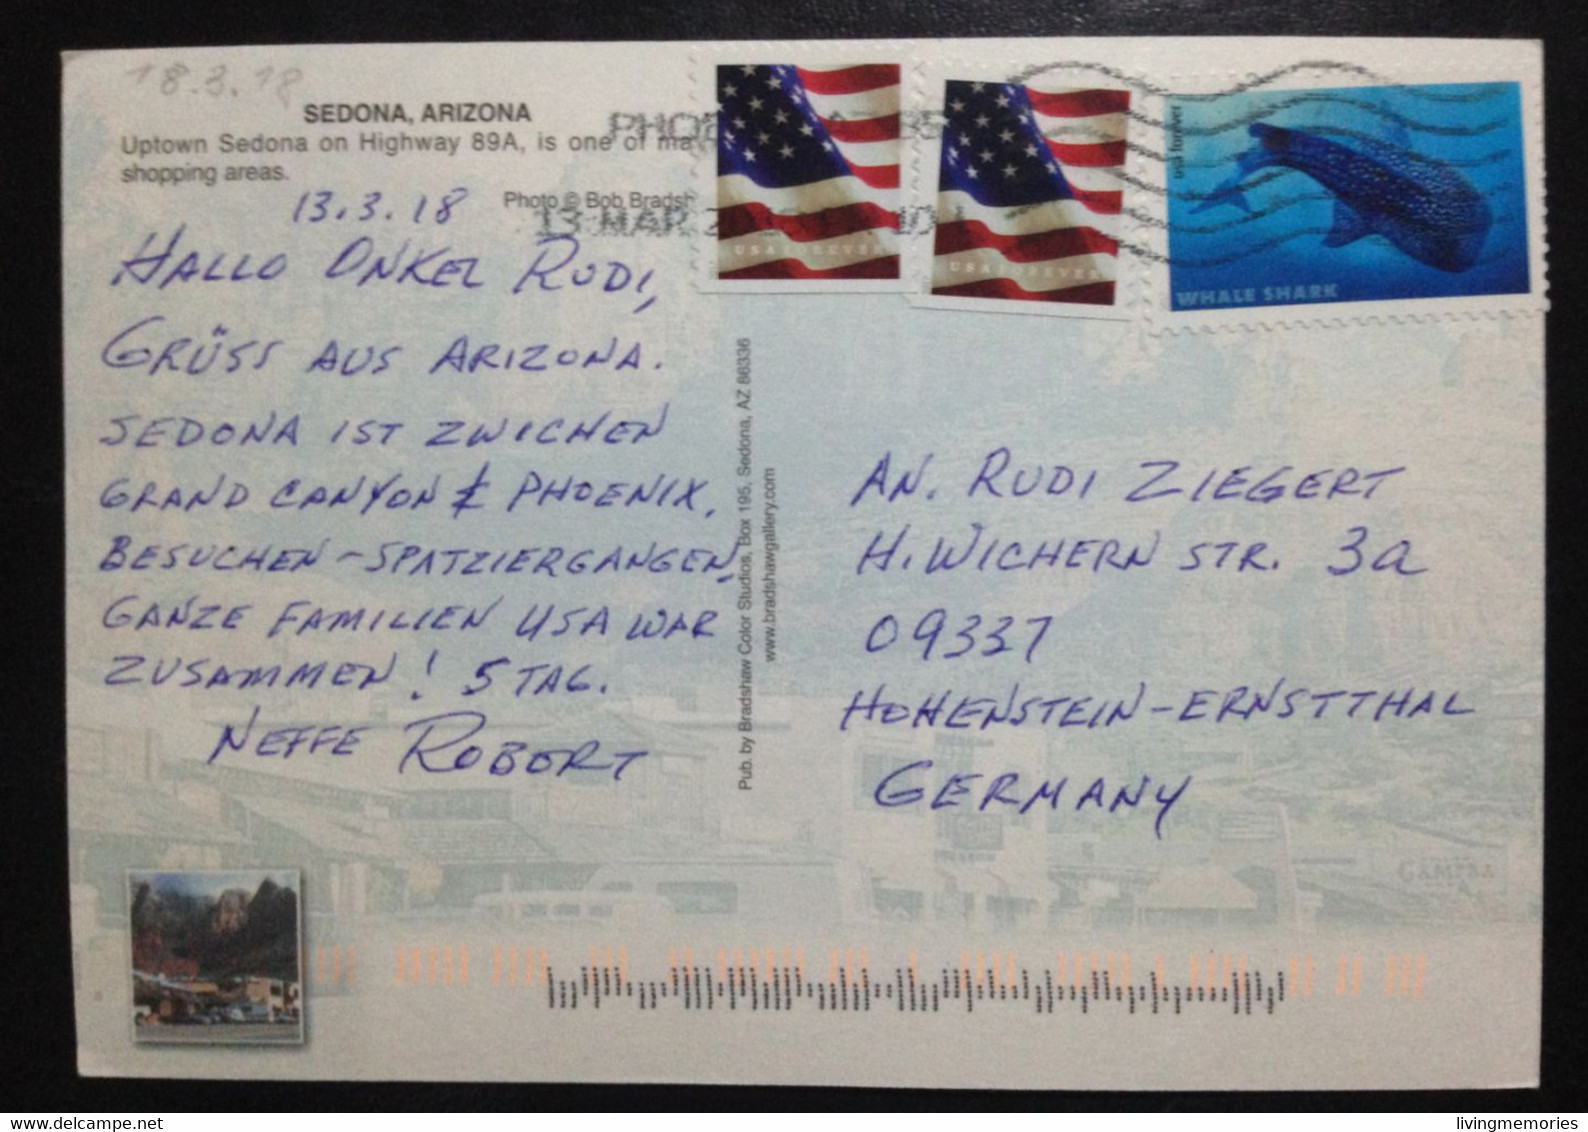 18.3.18
SEDONA, ARIZONA
Uptown Sedona on Highway 89A, is one of
shopping areas.
Photo © Bob Bradsh
13 MAR
13.3.18
HALLO ONKEL RUDI,
GRÜSS AUS ARIZONA.
SEDONA IST ZWICHEN
GRAND CANYON & PHOENIX.
BESUCHEN - SPATZIERGANGEN.
GANZE FAMILIEN USA WAR
ZUSAMMEN! 5 TAG.
NEFFE ROBERT
USA FOREVER
USA FOREVER
usa forever
WHALE SHARK
Pub. by Bradshaw Color Studios, Box 195, Sedona, AZ 86336
www.bradshawgallery.com
AN. RUDI ZIEGERT
H. WICHERN STR. 3a
09337
HOHENSTEIN-ERNSTTHAL
GERMANY
livingmemories